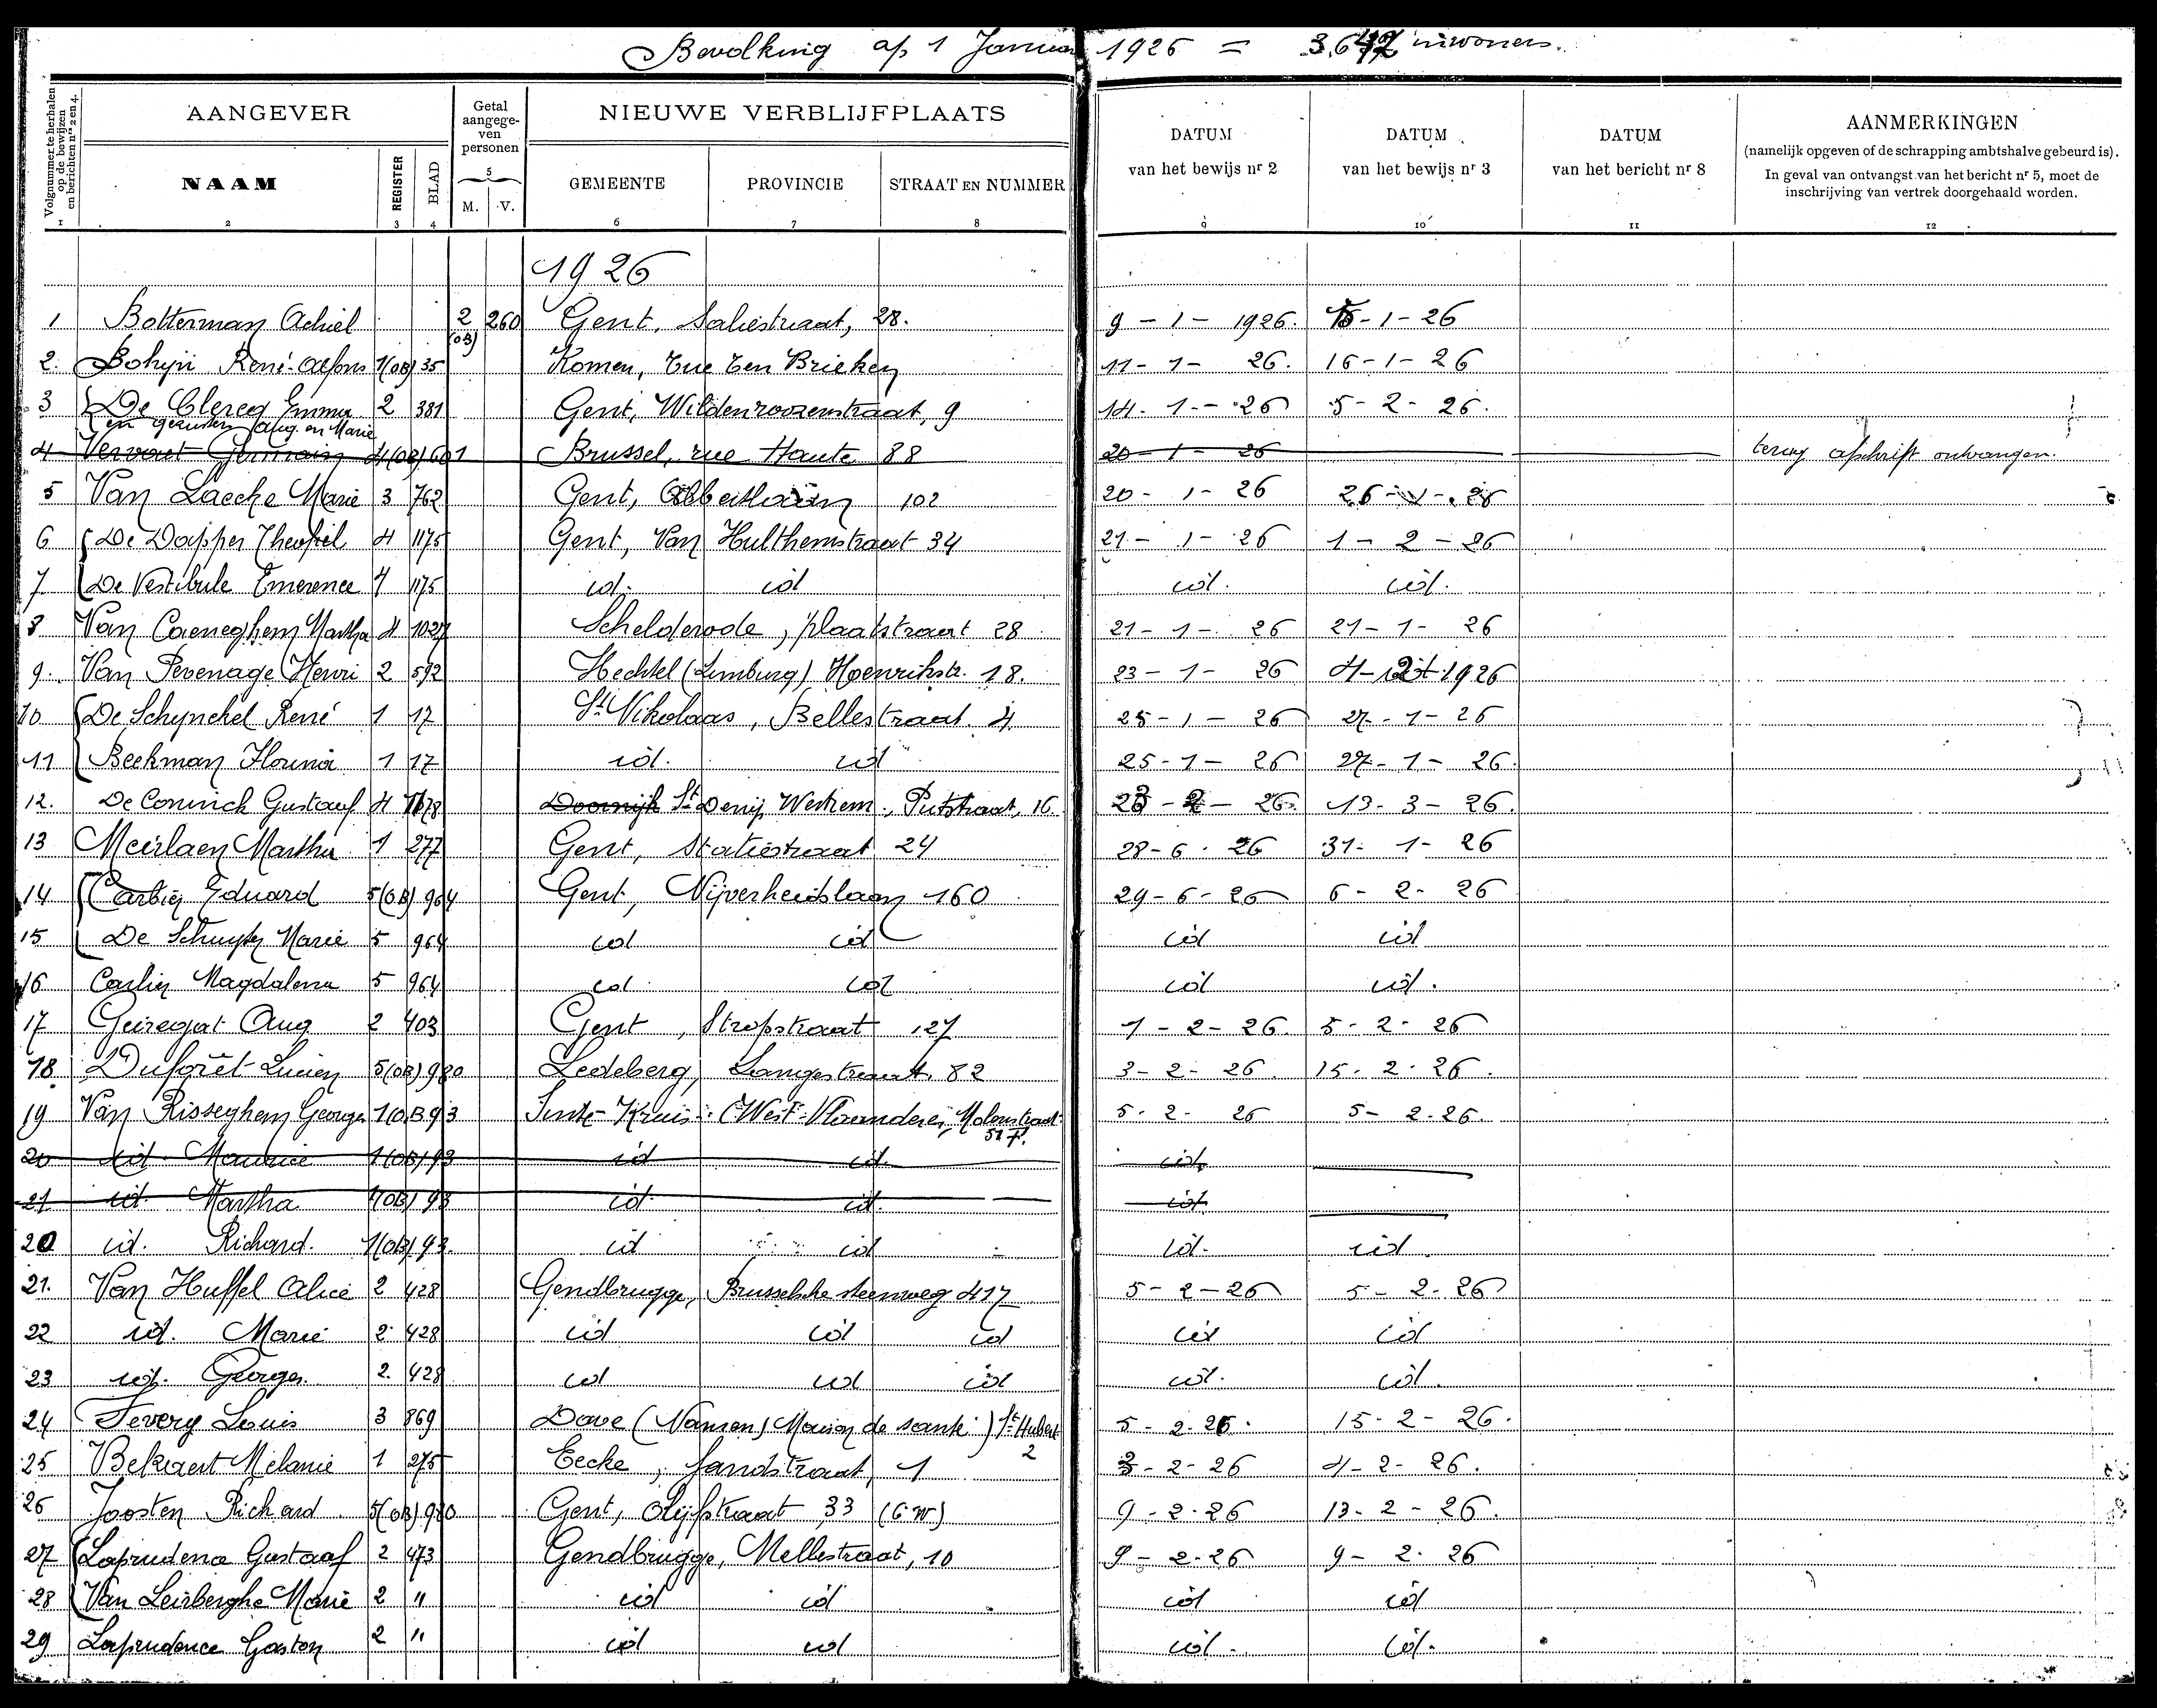 Bevolking op 1 Januari 1926 = inwoners.
Volgnummer te herhalen op de bewijzen en berichten nrs 2 en 4.
AANGEVER
Getal aangegeven personen
NIEUWE VERBLIJFPLAATS
DATUM van het bewijs nr 2
DATUM van het bewijs nr 3
DATUM van het bericht nr 8
AANMERKINGEN
(namelijk opgeven of de schrapping ambtshalve gebeurd is).
In geval van ontvangst van het bericht nr 5, moet de inschrijving van vertrek doorgehaald worden.
NAAM REGISTER BLAD 5 M. V. GEMEENTE PROVINCIE STRAAT EN NUMMER
1 2 3 4 6 7 8 9 10 11 12
1926
1 Botterman Achiel 2 (OB) 260 Gent, Saliestraat, 28. 9 - 1 - 1926. 15-1-26
2. Bohyn René-Alfons 1(OB) 35 Komen, rue ten Brieken 11-1-26. 16-1-26
3 De Clercq Emma 2 381 Gent, Wildenroozenstraat, 9 14-1-26 5-2-26.
en gezusters Aug. en Marie
4 Vervaet Germain 4(OB) 601 Brussel, rue Haute 88 20-1-26 terug afschrift ontvangen.
5 Van Laecke Marie 3 762 Gent, 102 20-1-26 26-1-26
6 De Dapper Theophiel 4 1175 Gent, Van Hulthemstraat 34 21-1-26 1-2-26
7 De Vestibule Emerence 4 1175 id. id id. id.
8 Van Caeneghem Martha 4 1027 Schelderode, plaatstraat 28 21-1-26 21-1-26
9. Van Pevenage Henri 2 592 Hechtel (Limburg) Hoenrikstr. 18. 23-1-26 4-2-1926
10 De Schynckel René 1 17 St Nikolaas, Bellestraat 4. 25-1-26 27-1-26
11 Beekman Florina 1 17 id. id 25-1-26 27-1-26.
12. De Coninck Gustaaf 4 1078 Doornijk St Denijs Westrem, Putstraat, 16. 26. 13-3-26.
13 Meirlaen Martha 1 277 Gent, Statiestraat 24 28-6-26 31-1-26
14 Carlier Eduard 5(OB) 964 Gent, Nijverheidslaan 160 29-6-26 6-2-26
15 De Schuyter Marie 5 964 id id id id
16 Carlier Magdalena 5 964 id id id id.
17 Geiregat Aug 2 403 Gent, Stropstraat 127 1-2-26. 5-2-26
18. Duforêt Lucien 5(OB) 980 Ledeberg, Langestraat 82 3-2-26. 15-2-26.
19 Van Risseghem Georges 1(OB) 93 Sinte-Kruis (West-Vlaanderen, Molenstraat 5-2-26 5-2-26.
20 id. Maurice 1(OB) 93 id id. id.
21 id. Martha 1(OB) 93 id. id. id.
20 id. Richard. 1(OB) 93. id id id. id.
21. Van Huffel Alice 2 428 Gendbrugge, Brusselsche steenweg 417 5-2-26 5-2-26
22 id. Marie 2 428 id id id id id
23 id. Georges 2. 428 id id id id. id.
24 Tevery Louis 3 869 Dave (Namen) Maison de santé) St Hubert 5-2-26. 15-2-26.
2
25 Bekaert Melanie 1 275 Eecke, Landstraat, 1 3-2-26 4-2-26.
26 Joosten Richard 5(OB) 980 Gent, Olijfstraat 33 (G.W) 9-2-26 13-2-26.
27 Laprudence Gustaaf 2 473 Gendbrugge, Mellestraat, 10 9-2-26 9-2-26
28 Van Leirberghe Marie 2 " id id id id
29 Laprudence Gaston 2 " id id id. id.